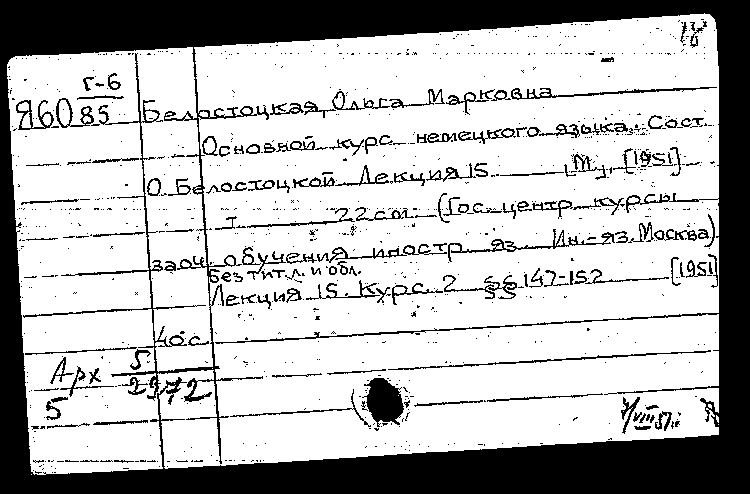 18
Г-6
Я60 85 Белостоцкая, Ольга Марковна
Основной курс немецкого языка. Сост.
О. Белостоцкой. Лекция 15. [М], [1951]
т 22 см. (Гос. центр. курсы
заоч. обучения иностр. яз. Ин.-яз. Москва)
Без тит. л. и обл.
Лекция 15. Курс 2 §§ 147-152 [1951]
40 с.
Арх 5
5 2972